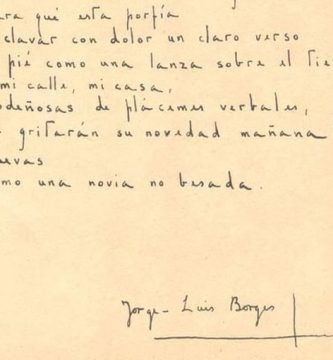 ra qué esta porfía
clavar con dolor un claro verso
pié como una lanza sobre el tie
mi calle, mi casa,
deñosas de plácemes verbales,
gritarán su novedad mañana
evas
mo una novia no besada.
Jorge-Luis Borges